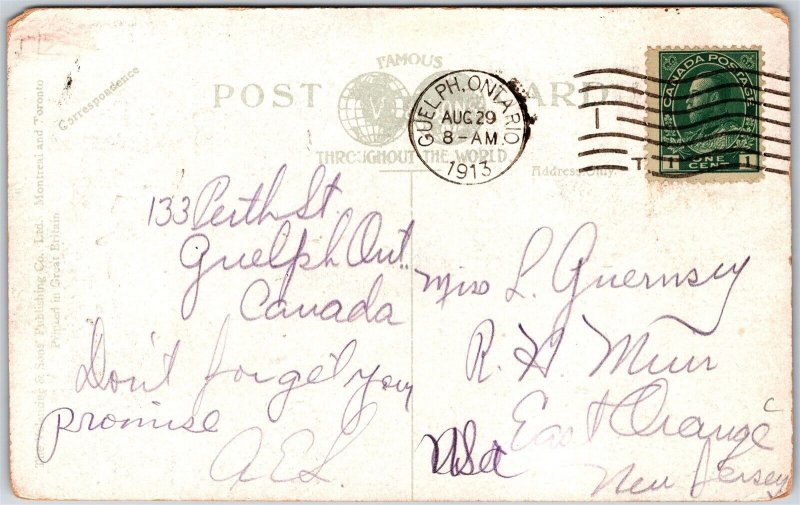 FAMOUS
POST CARD
THROUGHOUT THE WORLD
Correspondence
Address Only.
& Sons Publishing Co., Ltd. Montreal and Toronto
Printed in Great Britain
GUELPH, ONTARIO
AUG 29
8-AM
1913
CANADA POSTAGE
1 ONE CENT 1
133 Perth St
Guelph Ont.
Canada
Don't forget your
promise
A.E.L.
Miss L. Guernsey
R. H. Muir
East Orange
New Jersey
USA